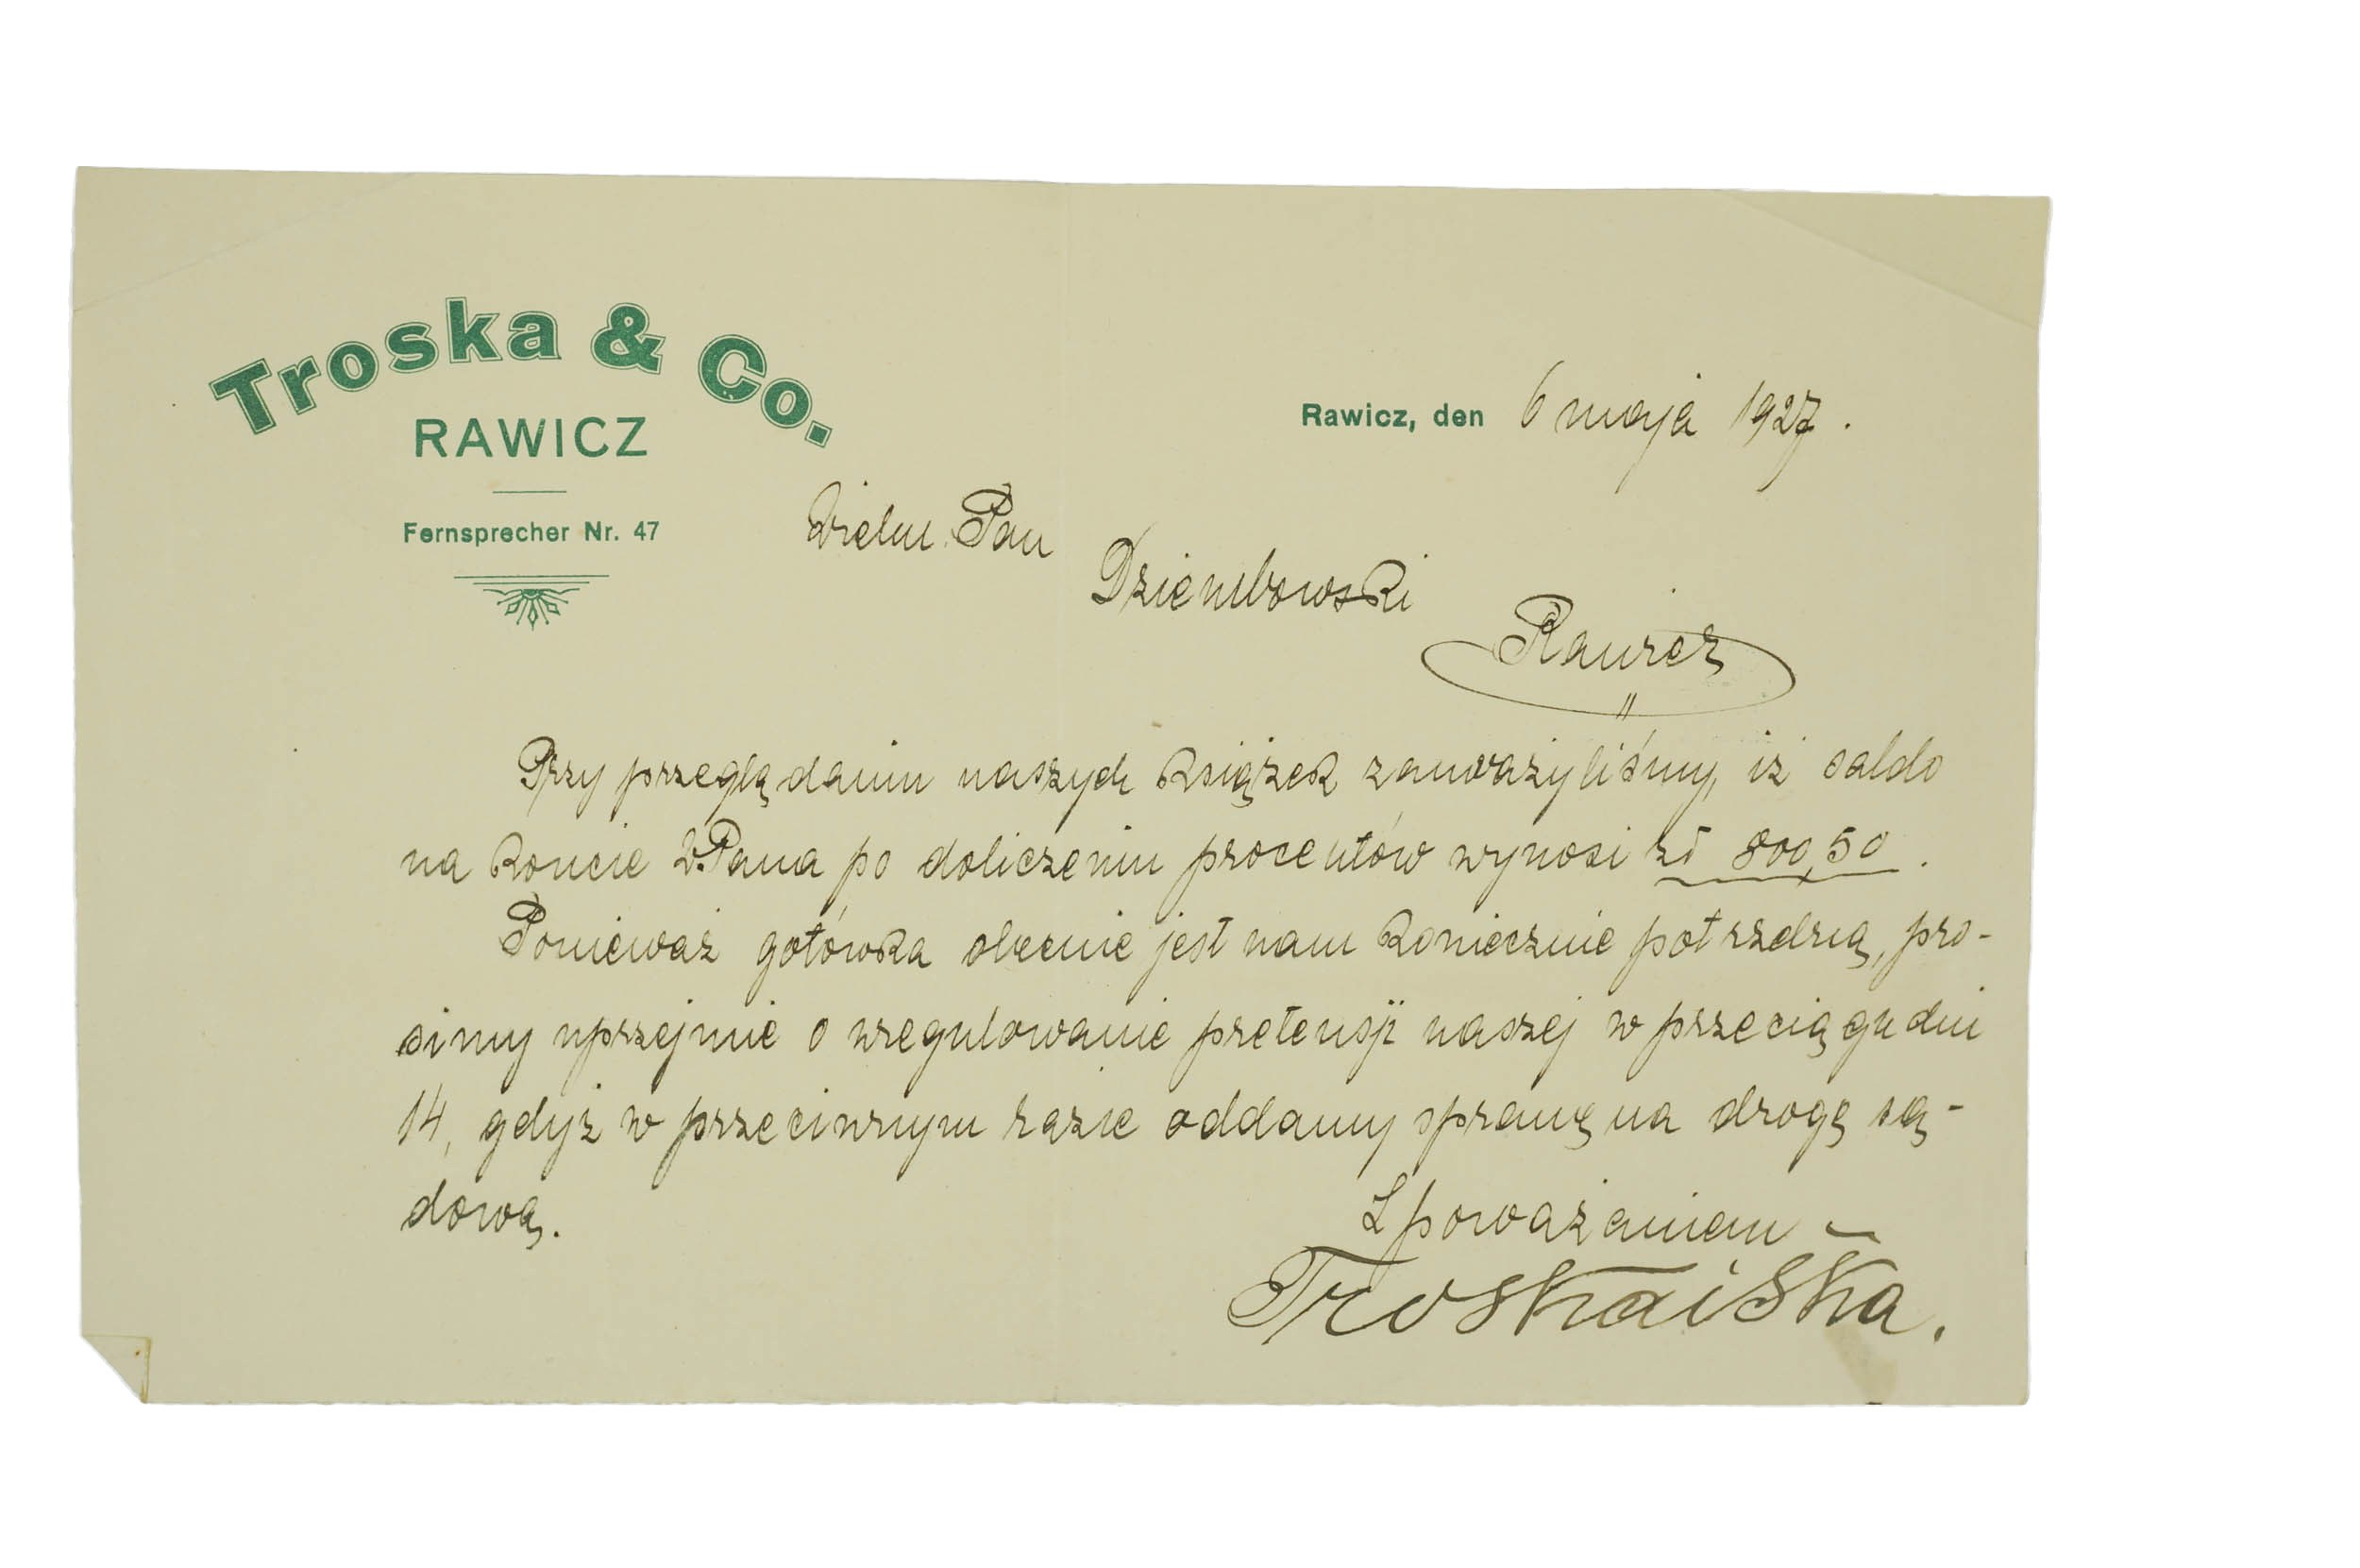 Troska & Co.
RAWICZ
Fernsprecher Nr. 47
Rawicz, den 6 maja 1927.
Wielm. Pan
Dziembowski
Rawicz
Przy przeglądaniu naszych książek zauważyliśmy, iż saldo
na koncie W.Pana po doliczeniu procentów wynosi zł 800,50.
Ponieważ gotówka obecnie jest nam koniecznie potrzebną, pro-
simy uprzejmie o uregulowanie pretensji naszej w przeciągu dni
14, gdyż w przeciwnym razie oddamy sprawę na drogę są-
dową.
Z poważaniem
Troska i Ska.